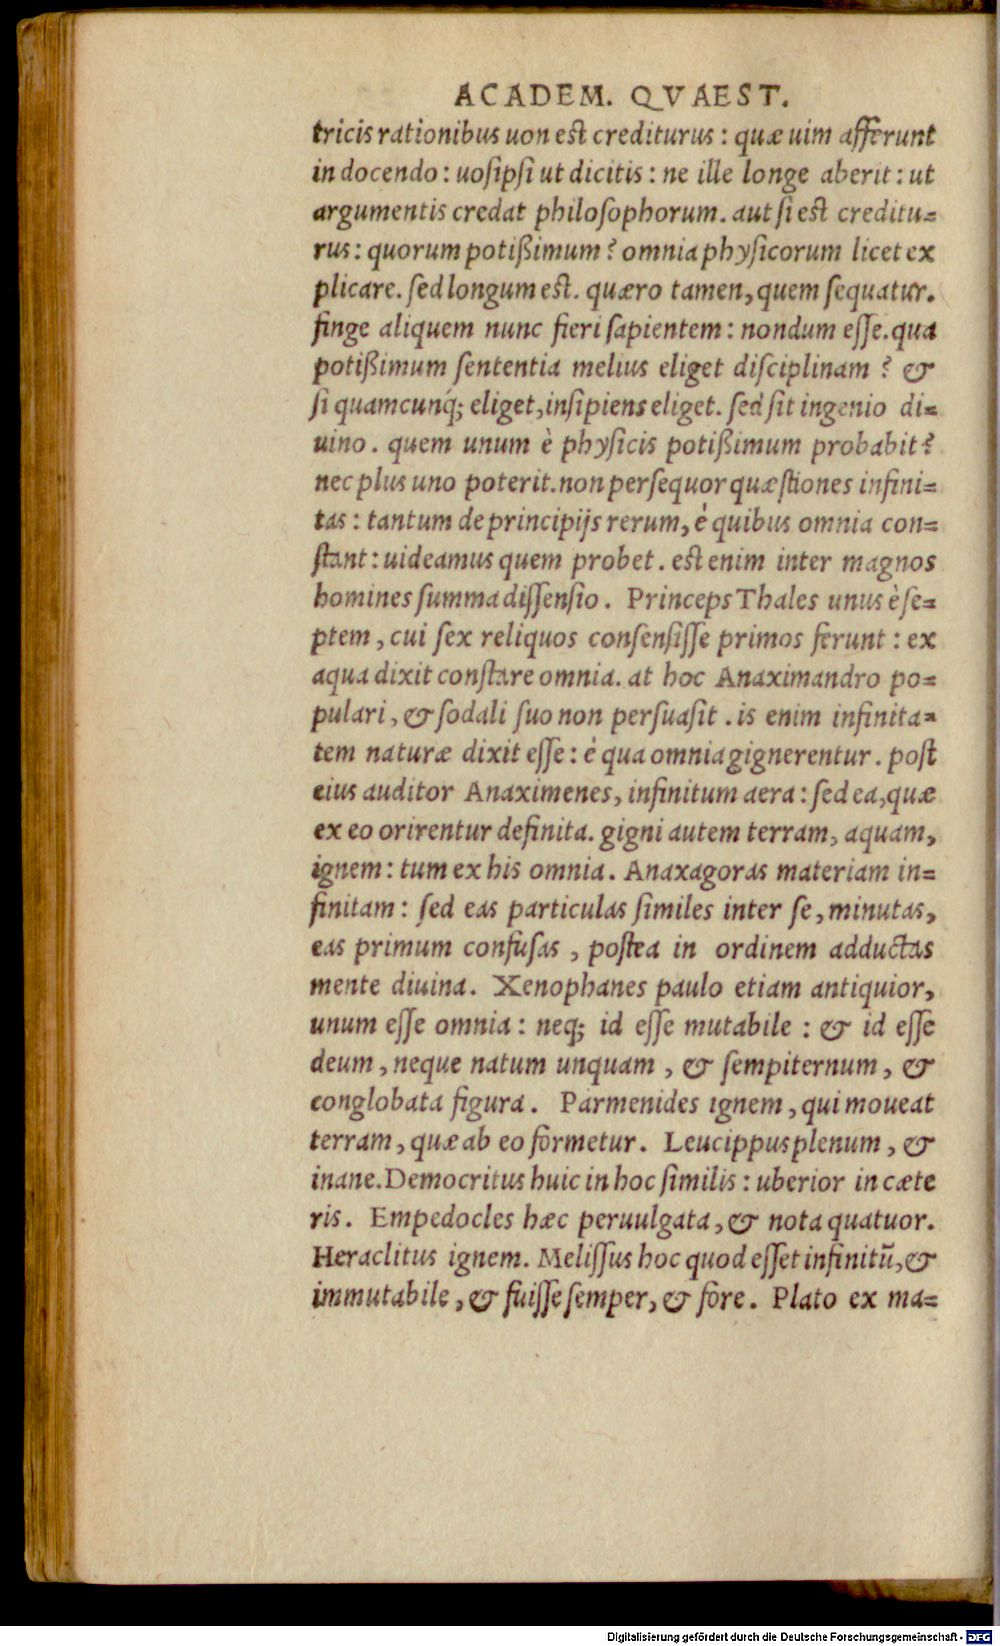 ACADEM. QVAEST.
tricis rationibus uon est crediturus : quæ uim afferunt
in docendo : uosipsi ut dicitis : ne ille longe aberit : ut
argumentis credat philosophorum. aut si est creditu=
rus : quorum potißimum ? omnia physicorum licet ex
plicare. sed longum est. quæro tamen, quem sequatur.
finge aliquem nunc fieri sapientem : nondum esse. qua
potißimum sententia melius eliget disciplinam ? &
si quamcunq́; eliget, insipiens eliget. sed sit ingenio di=
uino. quem unum è physicis potißimum probabit ?
nec plus uno poterit. non persequor quæstiones infini=
tas : tantum de principijs rerum, é quibus omnia con=
stant : uideamus quem probet. est enim inter magnos
homines summa dissensio. Princeps Thales unus è se=
ptem, cui sex reliquos consensisse primos ferunt : ex
aqua dixit constare omnia. at hoc Anaximandro po=
pulari, & sodali suo non persuasit. is enim infinita=
tem naturæ dixit esse : é qua omnia gignerentur. post
eius auditor Anaximenes, infinitum aera : sed ea, quæ
ex eo orirentur definita. gigni autem terram, aquam,
ignem : tum ex his omnia. Anaxagoras materiam in=
finitam : sed eas particulas similes inter se, minutas,
eas primum confusas, postea in ordinem adductas
mente diuina. Xenophanes paulo etiam antiquior,
unum esse omnia : neq; id esse mutabile : & id esse
deum, neque natum unquam, & sempiternum, &
conglobata figura. Parmenides ignem, qui moueat
terram, quæ ab eo formetur. Leucippus plenum, &
inane. Democritus huic in hoc similis : uberior in cæte
ris. Empedocles hæc peruulgata, & nota quatuor.
Heraclitus ignem. Melissus hoc quod esset infinitũ, &
immutabile, & fuisse semper, & fore. Plato ex ma=
Digitalisierung gefördert durch die Deutsche Forschungsgemeinschaft - DFG